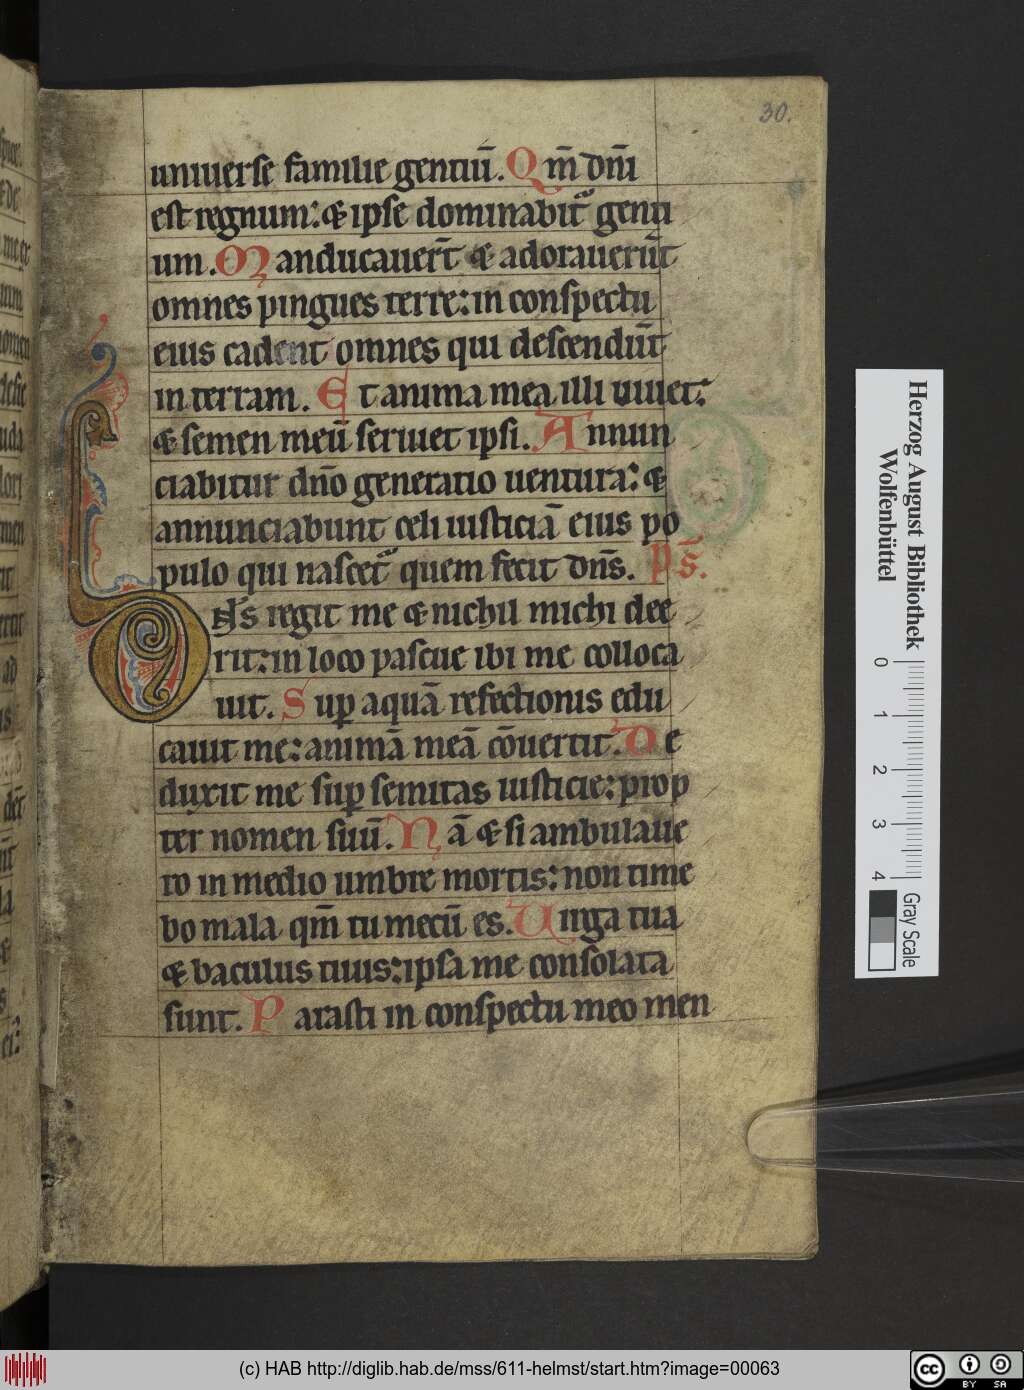 30.
uniuerse familie gentiū. Qm̄ dn̄i
est regnum: & ipse dominabit᷑ genti
um. Manducauer̄t & adorauerūt
omnes pingues terre: in conspectu
eius cadent omnes qui descendūt
in terram. Et anima mea illi uiuet:
& semen meū seruiet ipsi. Annun
ciabitur dn̄o generatio uentura: &
annunciabunt celi iusticiā eius po
pulo qui nascet᷑ quem fecit dn̄s. Ps̄.
Dn̄s regit me & nichil michi dee
rit: in loco pascue ibi me colloca
uit. Suꝑ aquā refectionis edu
cauit me: animā meā cōuertit. De
duxit me suꝑ semitas iusticie: prop
ter nomen suū. Nā & si ambulaue
ro in medio umbre mortis: non time
bo mala qm̄ tu mecū es. Uirga tua
& baculus tuus: ipsa me consolata
sunt. Parasti in conspectu meo men
Herzog August Bibliothek
Wolfenbüttel
0 1 2 3 4
Gray Scale
(c) HAB http://diglib.hab.de/mss/611-helmst/start.htm?image=00063
cc BY SA